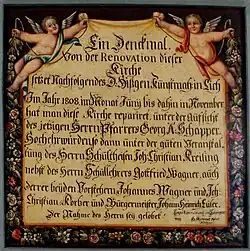 Ein Denkmal.
Von der Renovation dieser
Kirche
setzet Nachfolgendes D. Höfgen
Im Jahr 1808. im Monat Juny bis dahin im November
hat man diese Kirche repariret, unter der Aufsicht
des jetzigen Herrn Pfarrers Georg A. Schapper.
Hochehrwürden so dann unter der guten Veranstal-
tung des Herrn Schultheisen Joh. Christian Kreiling
nebst des Herrn Schullehrers Gottfried Wagner, auch
derrer beyden Vorstehern Johannes Wagner und Joh.
Christian Körber und Bürgermeister Johann Henrich Euler.
Der Nahme des Herrn sey gelobet